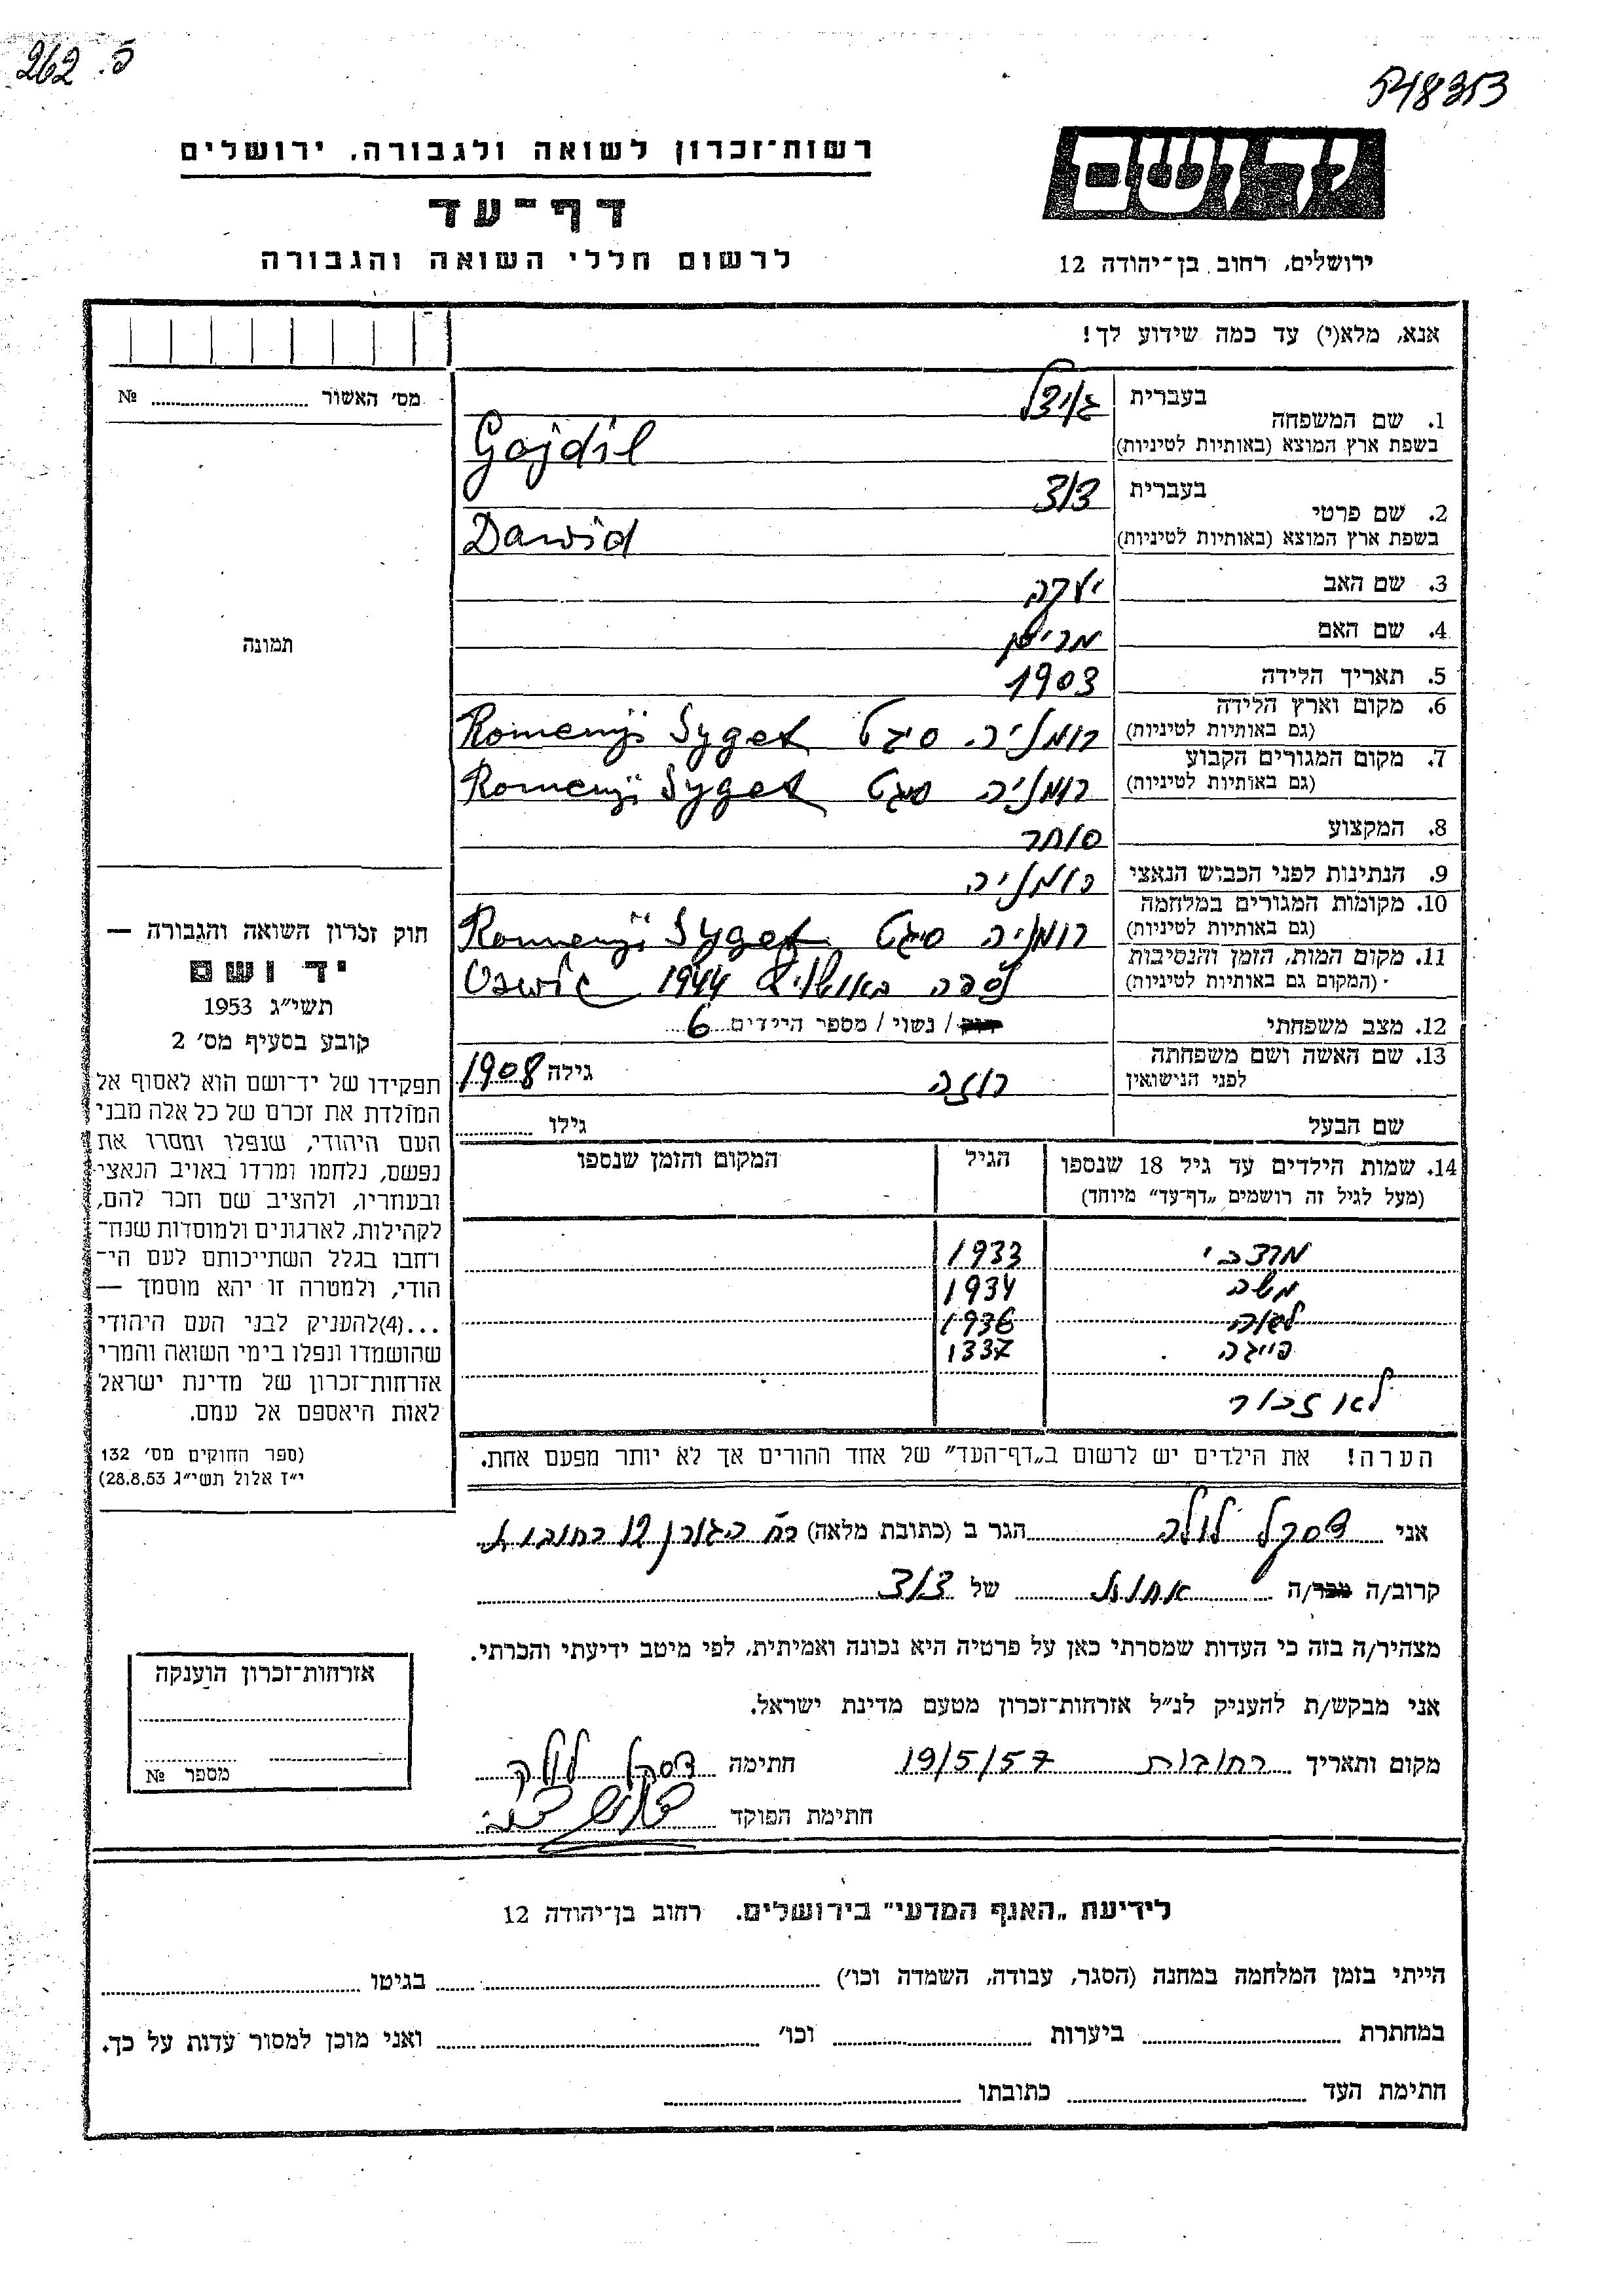 262 .פ
548353
יד ושם
רשות־זכרון לשואה ולגבורה, ירושלים
דף־עד
לרשום חללי השואה והגבורה
ירושלים, רחוב בן־יהודה 12
אנא, מלא(י) עד כמה שידוע לך!
מס' האשור № 
1. שם המשפחה
בעברית
בשפת ארץ המוצא (באותיות לטיניות) Gojdil
2. שם פרטי
בעברית דוד
בשפת ארץ המוצא (באותיות לטיניות) Dawid
3. שם האב יעקב
4. שם האם
5. תאריך הלידה 1903
6. מקום וארץ הלידה
(גם באותיות לטיניות) רומניה סיגט Romenji Syget
7. מקום המגורים הקבוע
(גם באותיות לטיניות) רומניה סיגט Romenji Syget
8. המקצוע סוחר
9. הנתינות לפני הכבוש הנאצי רומניה
10. מקומות המגורים במלחמה
(גם באותיות לטיניות) רומניה סיגט Romenji Syget
11. מקום המות, הזמן והנסיבות
(המקום גם באותיות לטיניות) נספה 1944
12. מצב משפחתי רווק / נשוי / מספר הילדים 6
13. שם האשה ושם משפחתה
לפני הנישואין רוזה גילה 1908
שם הבעל גילו
14. שמות הילדים עד גיל 18 שנספו
(מעל לגיל זה רושמים „דף־עד” מיוחד)
הגיל
המקום והזמן שנספו
מרדכי 1933
משה 1934
1936
פייגה 1337
לא זכור
הערה! את הילדים יש לרשום ב„דף־העד” של אחד ההורים אך לא יותר מפעם אחת.
תמונה
חוק זכרון השואה והגבורה —
יד ושם
תשי״ג 1953
קובע בסעיף מס' 2
תפקידו של יד־ושם הוא לאסוף אל
המולדת את זכרם של כל אלה מבני
העם היהודי, שנפלו ומסרו את
נפשם, נלחמו ומרדו באויב הנאצי
ובעוזריו, ולהציב שם וזכר להם,
לקהילות, לארגונים ולמוסדות שנח־
רבו בגלל השתייכותם לעם הי־
הודי, ולמטרה זו יהא מוסמך —
...(4) להעניק לבני העם היהודי
שהושמדו ונפלו בימי השואה והמרי
אזרחות־זכרון של מדינת ישראל
לאות היאספם אל עמם.
(ספר החוקים מס' 132
י״ז אלול תשי״ג 28.8.53)
אני לולה הגר ב (כתובת מלאה) רח' הגורן 12 רחובות
קרוב/ה מכר/ה אחות של דוד
מצהיר/ה בזה כי העדות שמסרתי כאן על פרטיה היא נכונה ואמיתית, לפי מיטב ידיעתי והכרתי.
אני מבקש/ת להעניק לנ״ל אזרחות־זכרון מטעם מדינת ישראל.
מקום ותאריך רחובות 19/5/57 חתימה
חתימת הפוקד
אזרחות־זכרון הוענקה
מספר №
לידיעת „האגף המדעי” בירושלים. רחוב בן־יהודה 12
הייתי בזמן המלחמה במחנה (הסגר, עבודה, השמדה וכו') בגיטו
במחתרת ביערות וכו' ואני מוכן למסור עדות על כך.
חתימת העד כתובתו